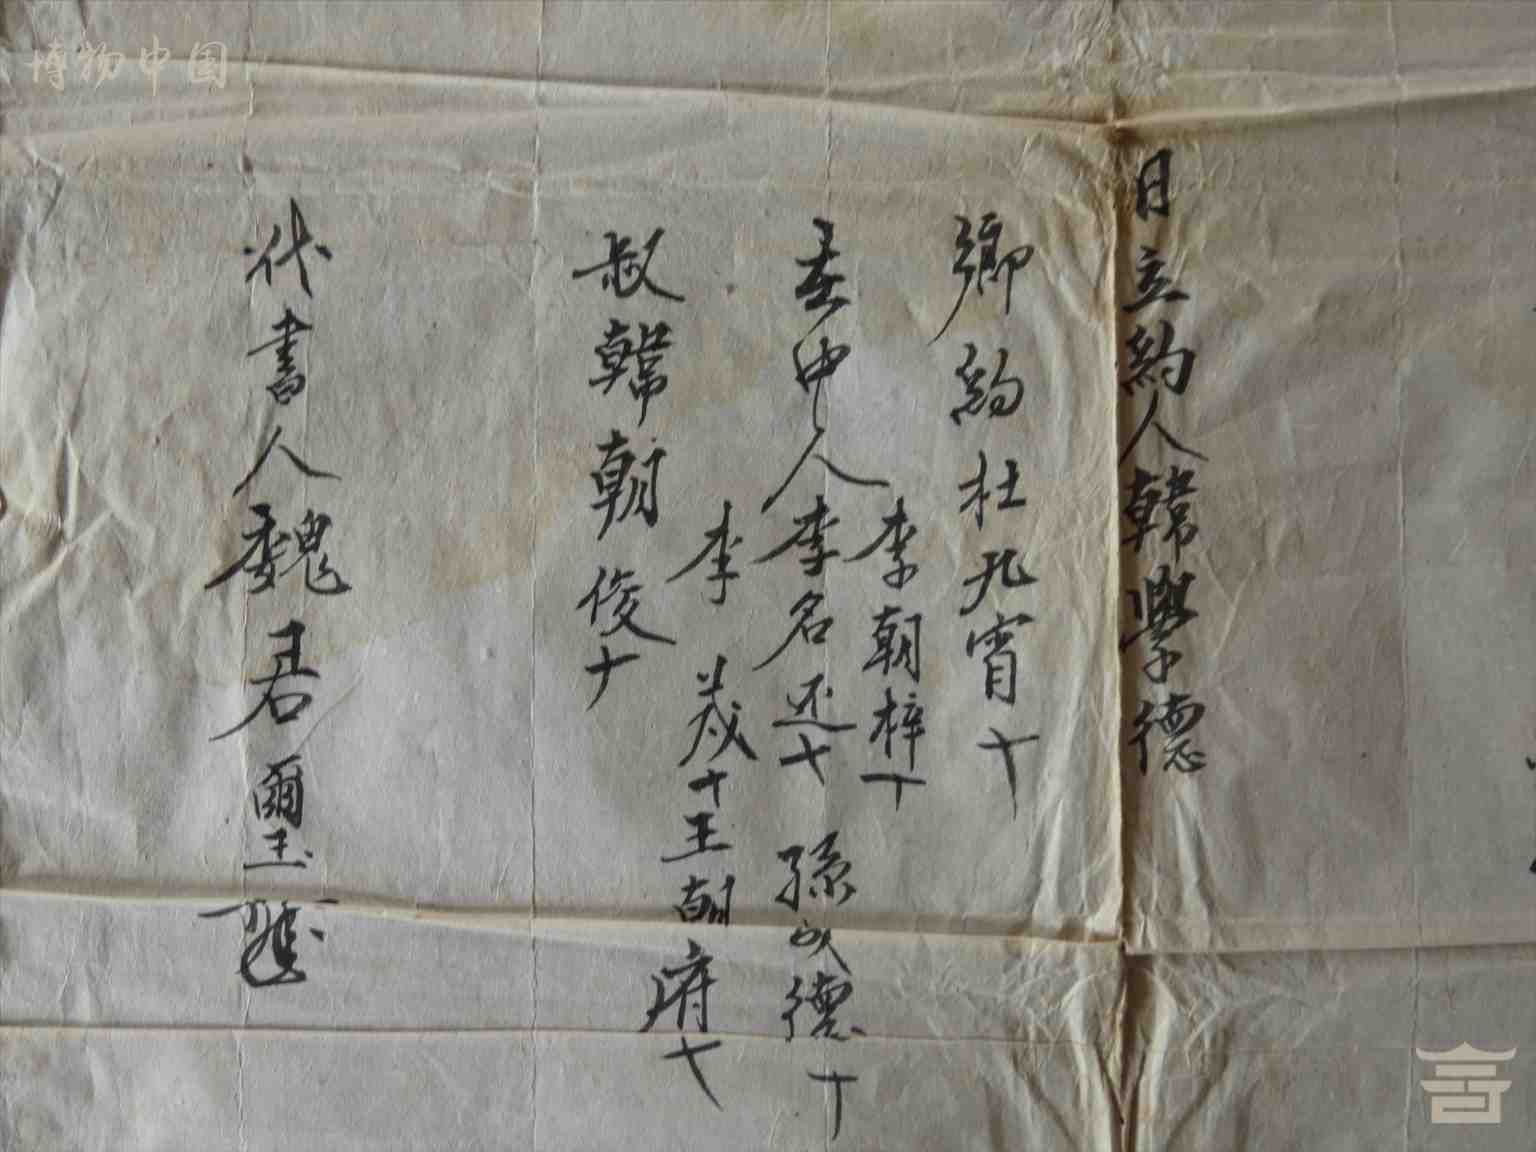 日立約人韓學德
鄉約杜孔宵十
李朝梓十
在中人李名还十 孫成德十
李茂十王朝府十
叔韓朝俊十
代書人魏君璽
博物中国